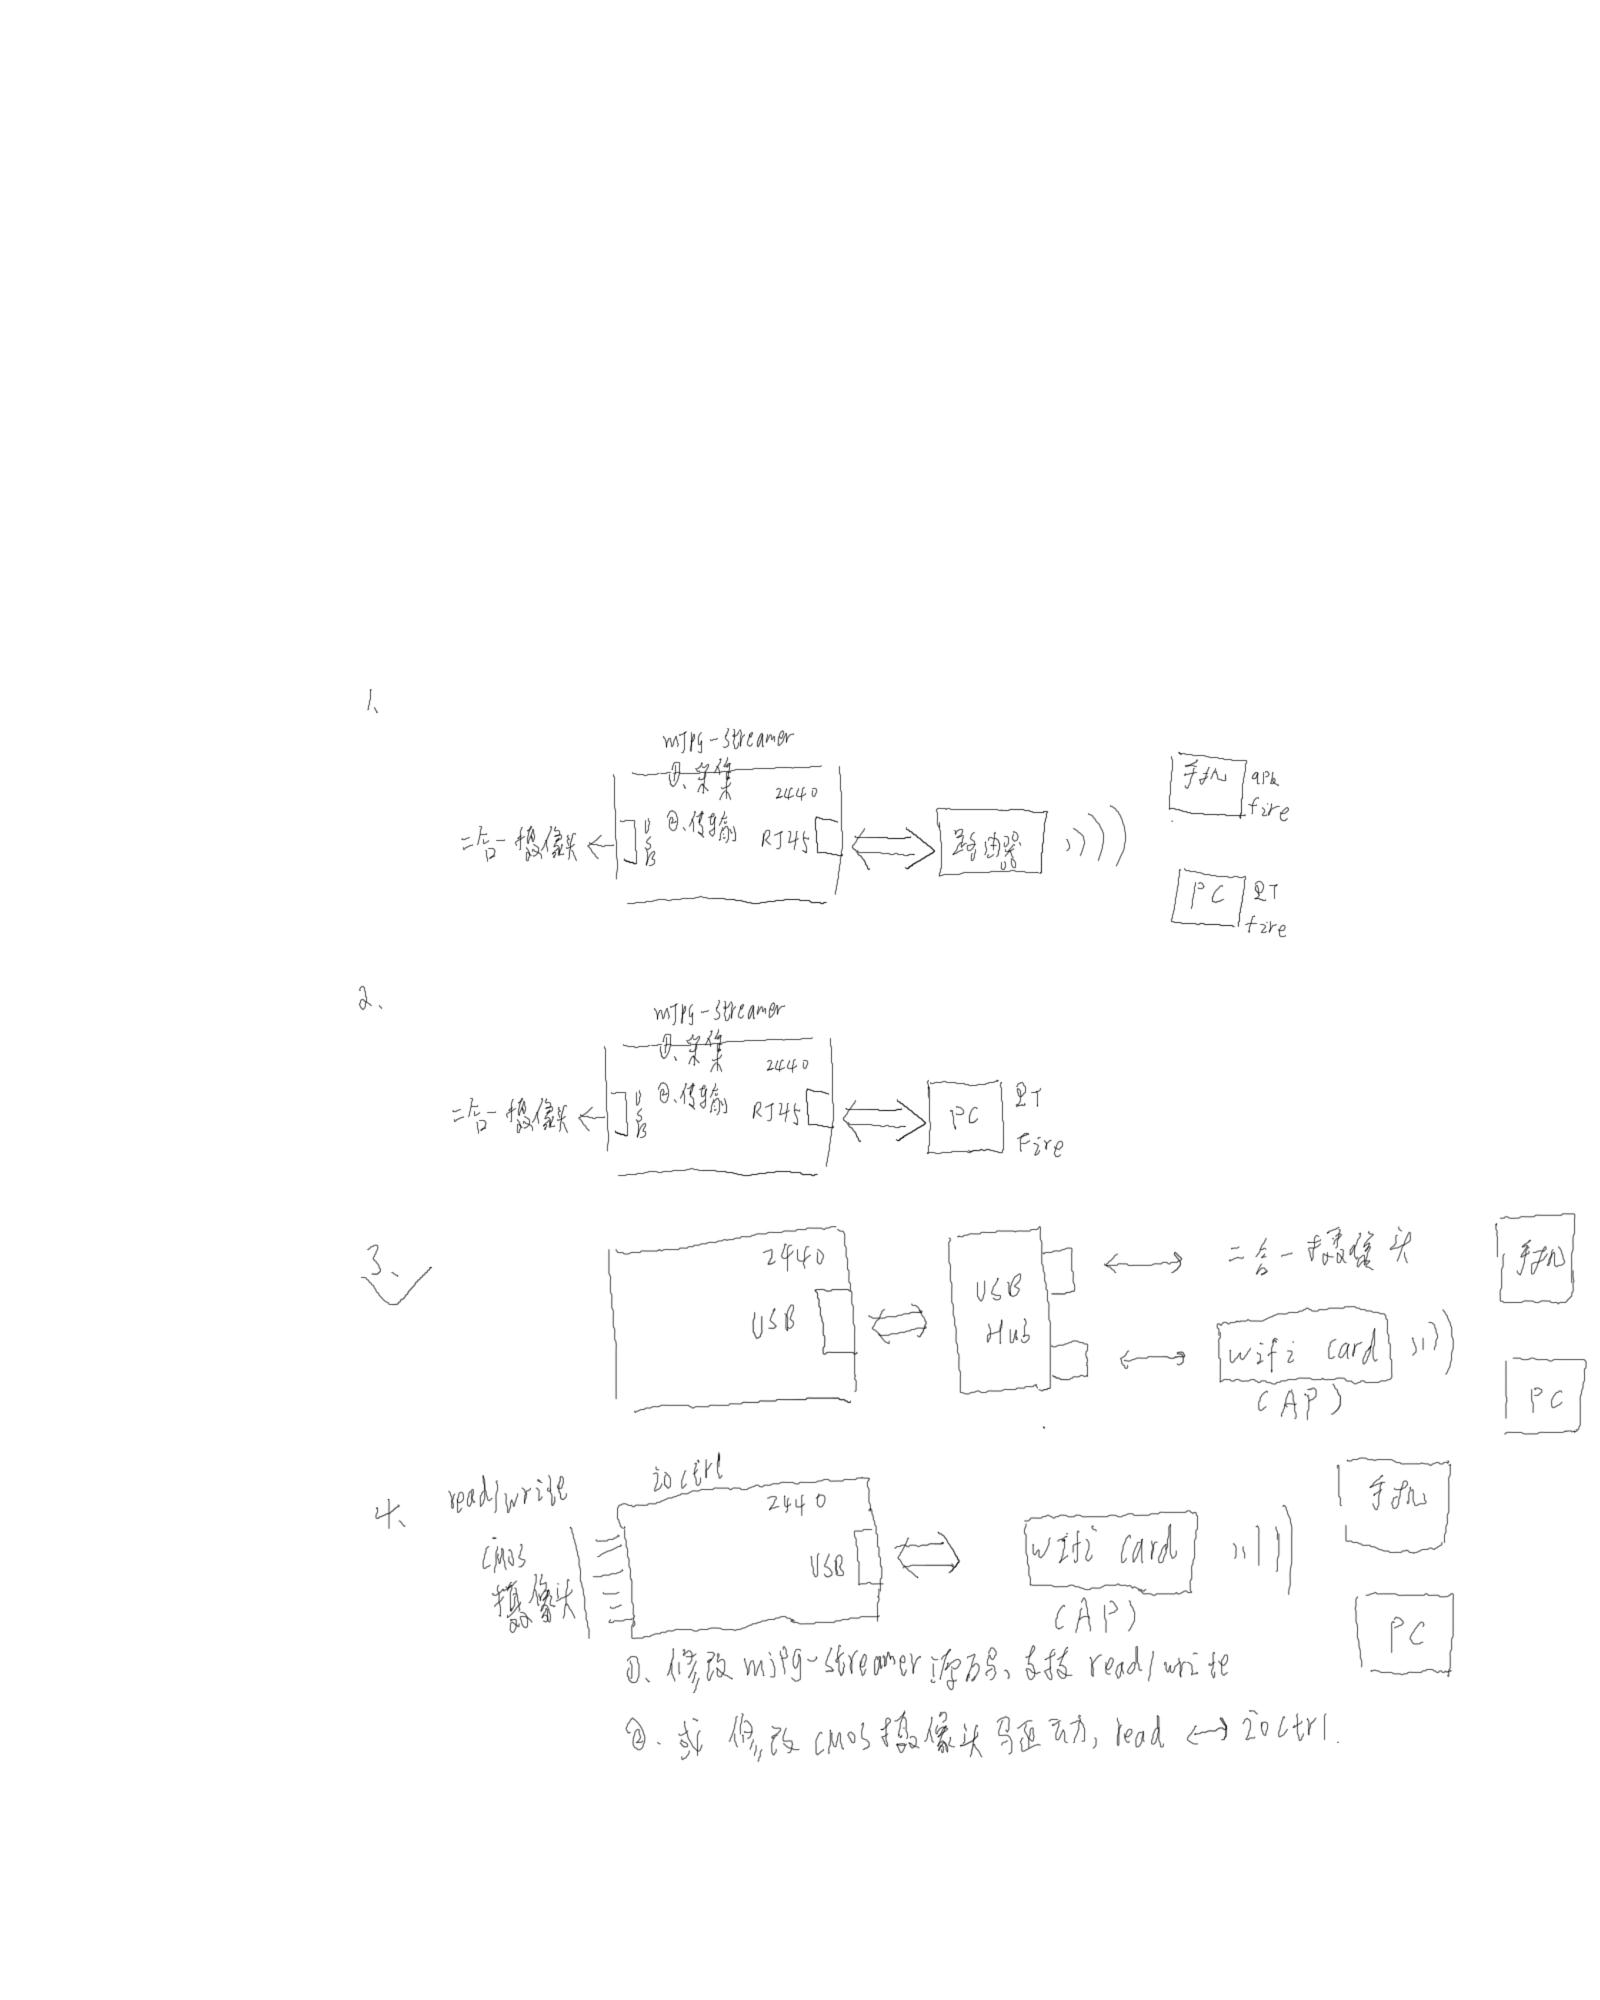 1、
mJpg-streamer
①、采集
2440
②、传输
二合一摄像头
USB
RJ45
路由器
手机
apk
fire
PC
QT
fire
2、
mJpg-streamer
①、采集
2440
②、传输
二合一摄像头
USB
RJ45
PC
QT
Fire
3、
2440
USB
USB
Hub
二合一摄像头
wifi card
(AP)
手机
PC
4、
read/write
ioctrl
CMOS
摄像头
2440
USB
wifi card
(AP)
手机
PC
①、修改mjpg-streamer源码,支持read/write
②、或修改CMOS摄像头驱动, read ↔ ioctrl.